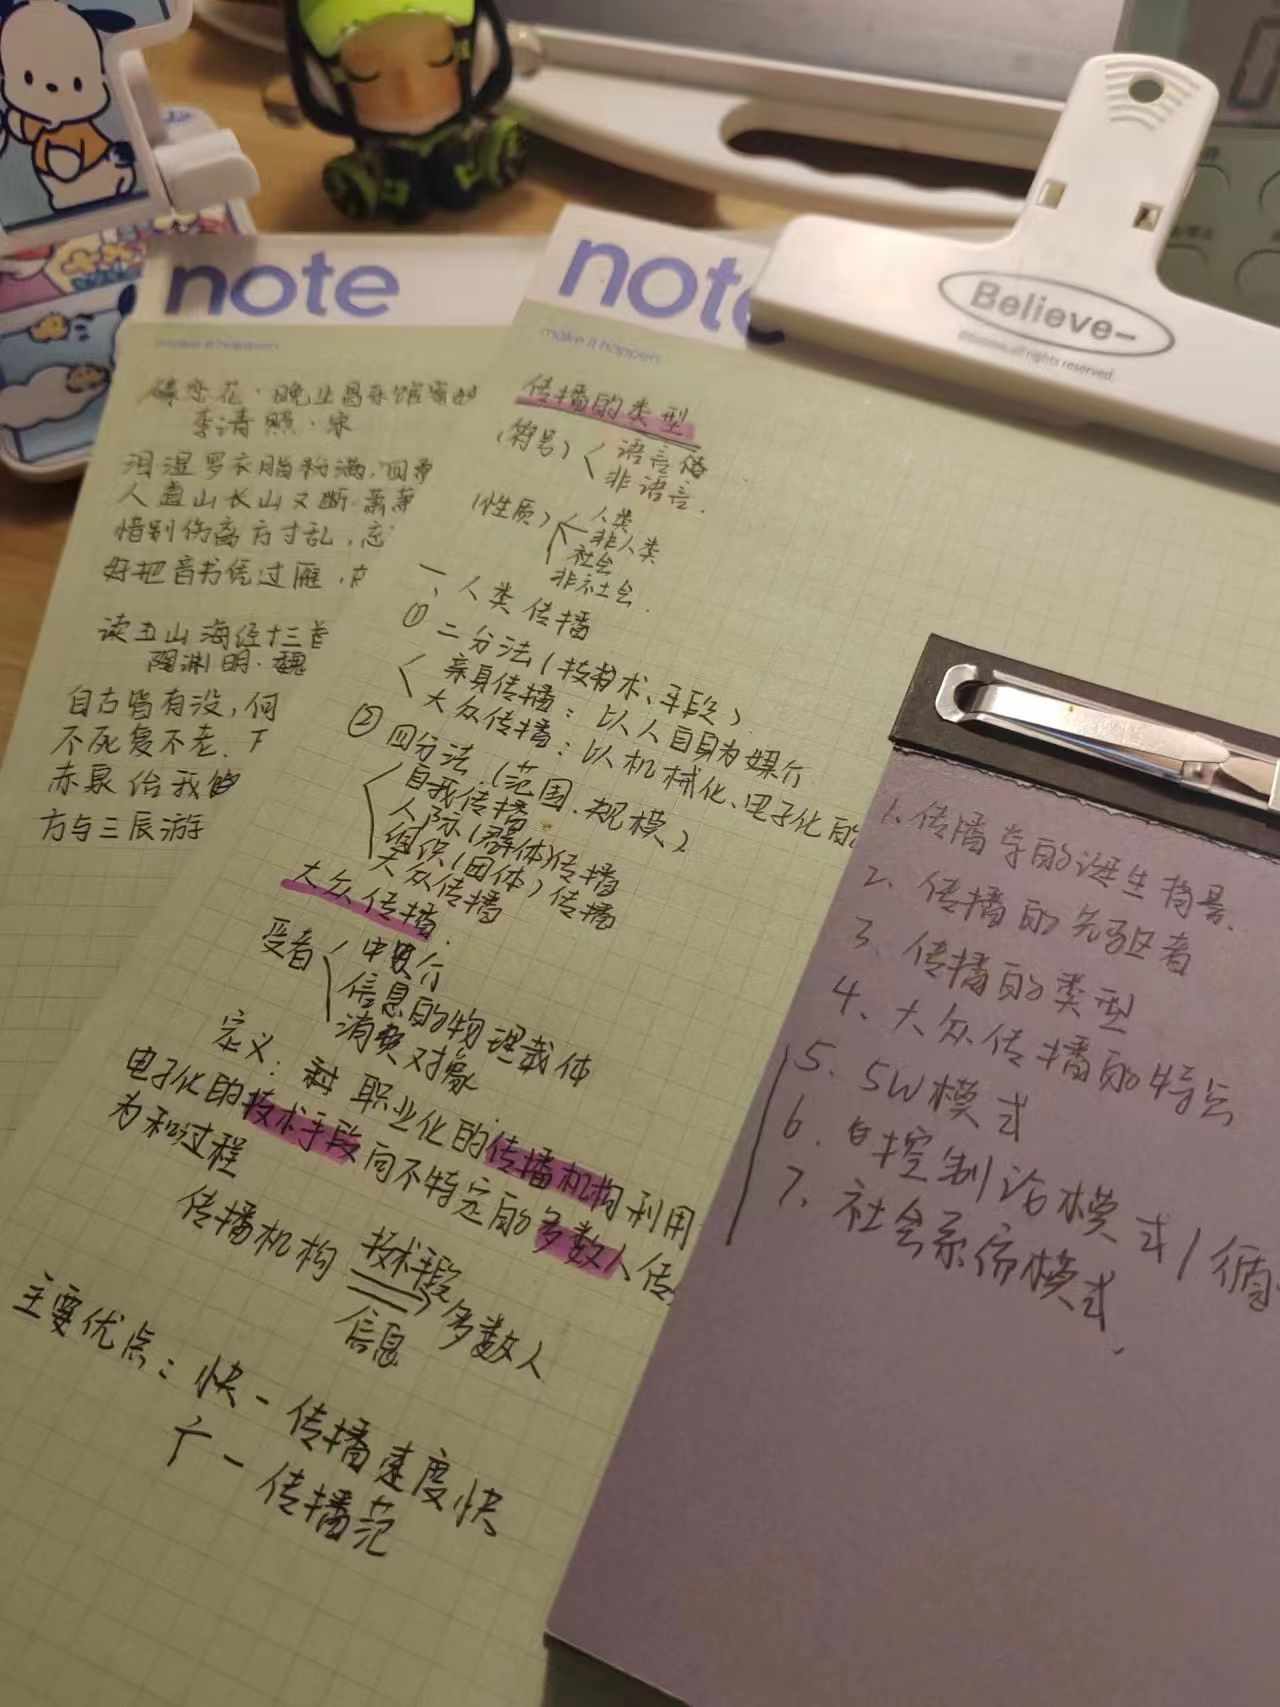 note
make it happen
蝶恋花·晚止昌乐馆寄
李清照·宋
泪湿罗衣脂粉满.四
人道山长山又断.萧
惜别伤离方寸乱,忘
好把音书凭过雁,
读五山海经十三首
陶渊明·魏
自古皆有没,何
不死复不老.
赤泉给我
方与三辰游
note
make it happen
传播的类型
(符号)
语言
非语言.
(性质)
人类
非人类
社会
非社会.
一、人类传播
① 二分法(技术、手段)
亲身传播:以人自身为媒介
大众传播:以机械化、电子化的
② 四分法.(范围.规模)
自我传播
人际(群体)传播
组织(团体)传播
大众传播
大众传播.
受者
中介
信息的物理载体
消费对象
定义: 职业化的传播机构利用
电子化的技术手段向不特定的多数人传
为和过程
传播机构 技术手段 多数人
信息
主要优点:快-传播速度快
广-传播范
Believe-
all rights reserved.
1.传播学的诞生背景.
2.传播的先驱者
3.传播的类型
4.大众传播的特点
5.5W模式
6.控制论模式/循
7.社会系统模式.